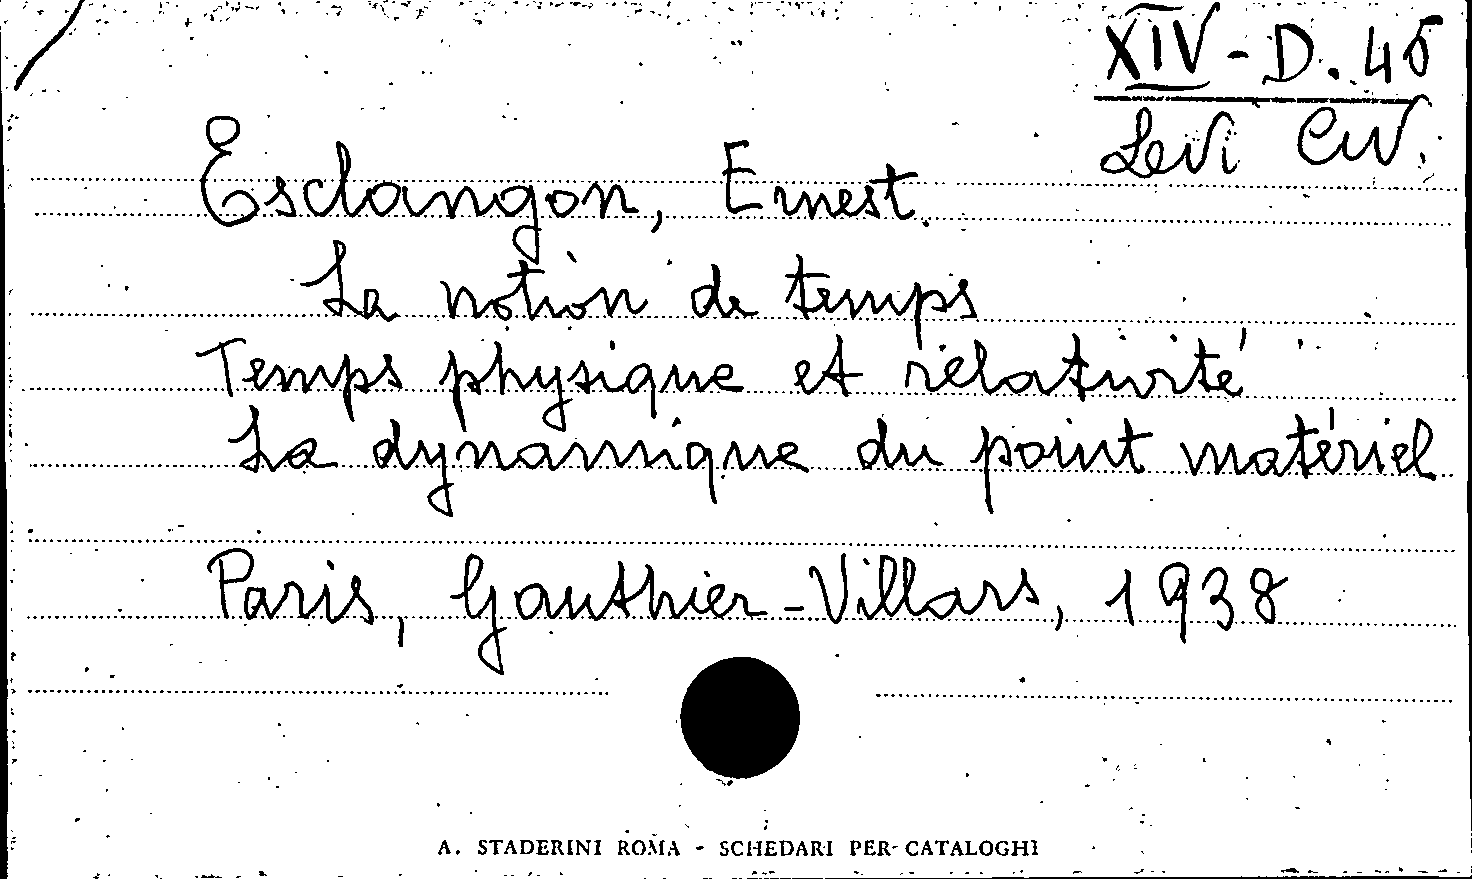 XIV - D. 45
Levi Civ.
Esclangon, Ernest.
La notion de temps
Temps physique et rélativité
La dynamique du point matériel
Paris, Gauthier-Villars, 1938
A. STADERINI ROMA - SCHEDARI PER CATALOGHI